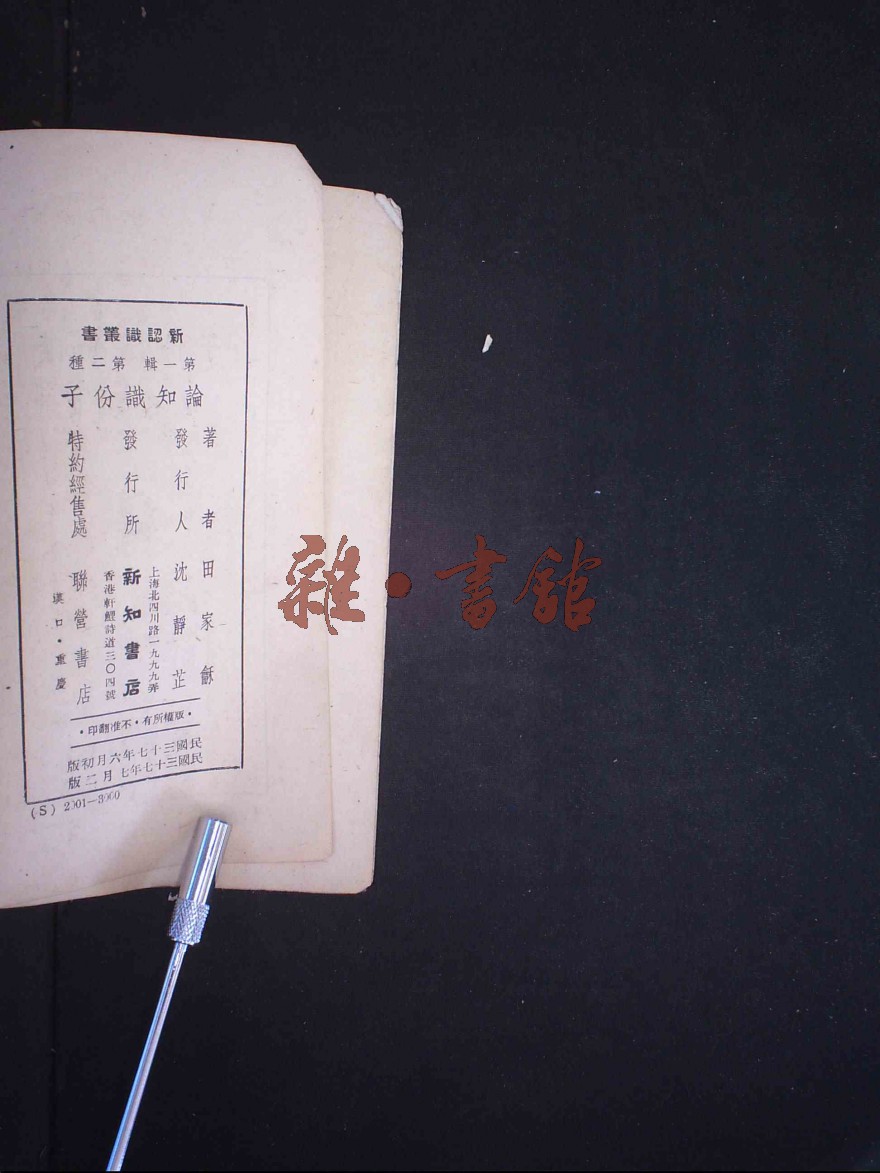 新認識叢書
第一輯 第二種
論知識份子
著者 田家龢
發行人 沈靜芷
上海北四川路一九九九弄
發行所 新知書店
香港軒鯉詩道三〇四號
特約經售處 聯營書店
漢口·重慶
·版權所有·不准翻印·
民國三十七年六月初版
民國三十七年七月二版
(S) 2001—3000
雜·書館